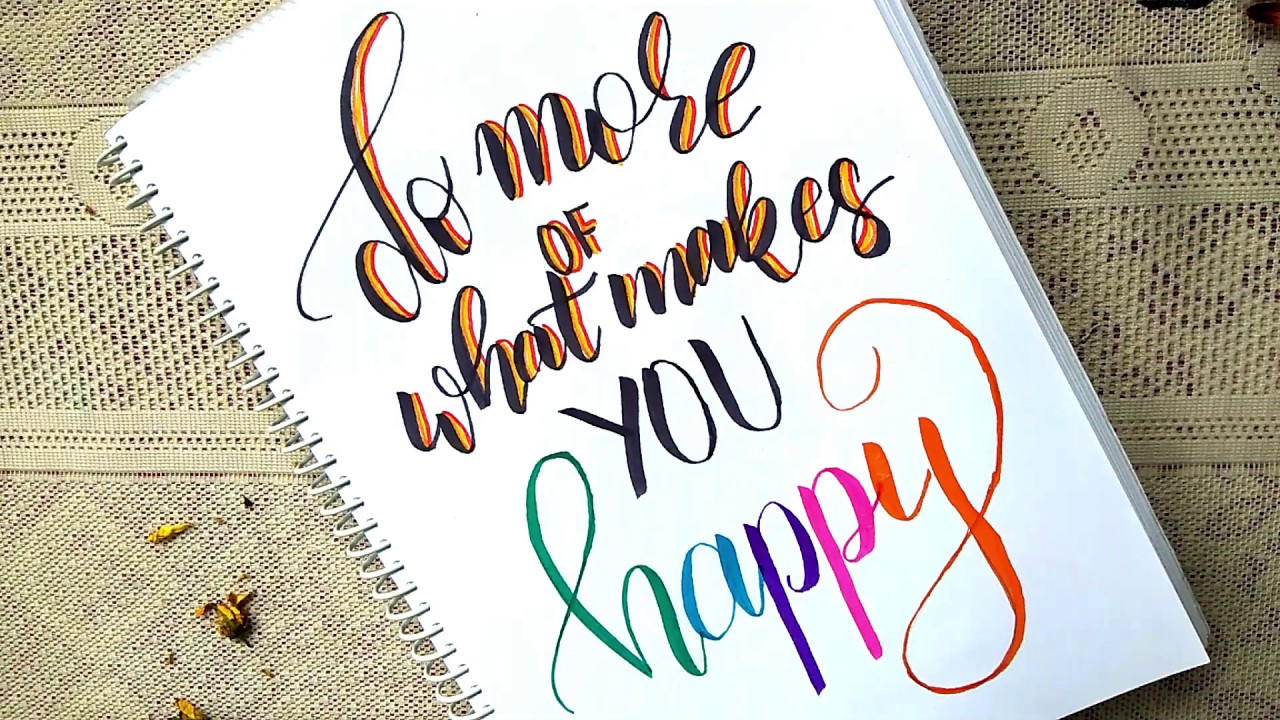 do more
OF
what makes
YOU
happy